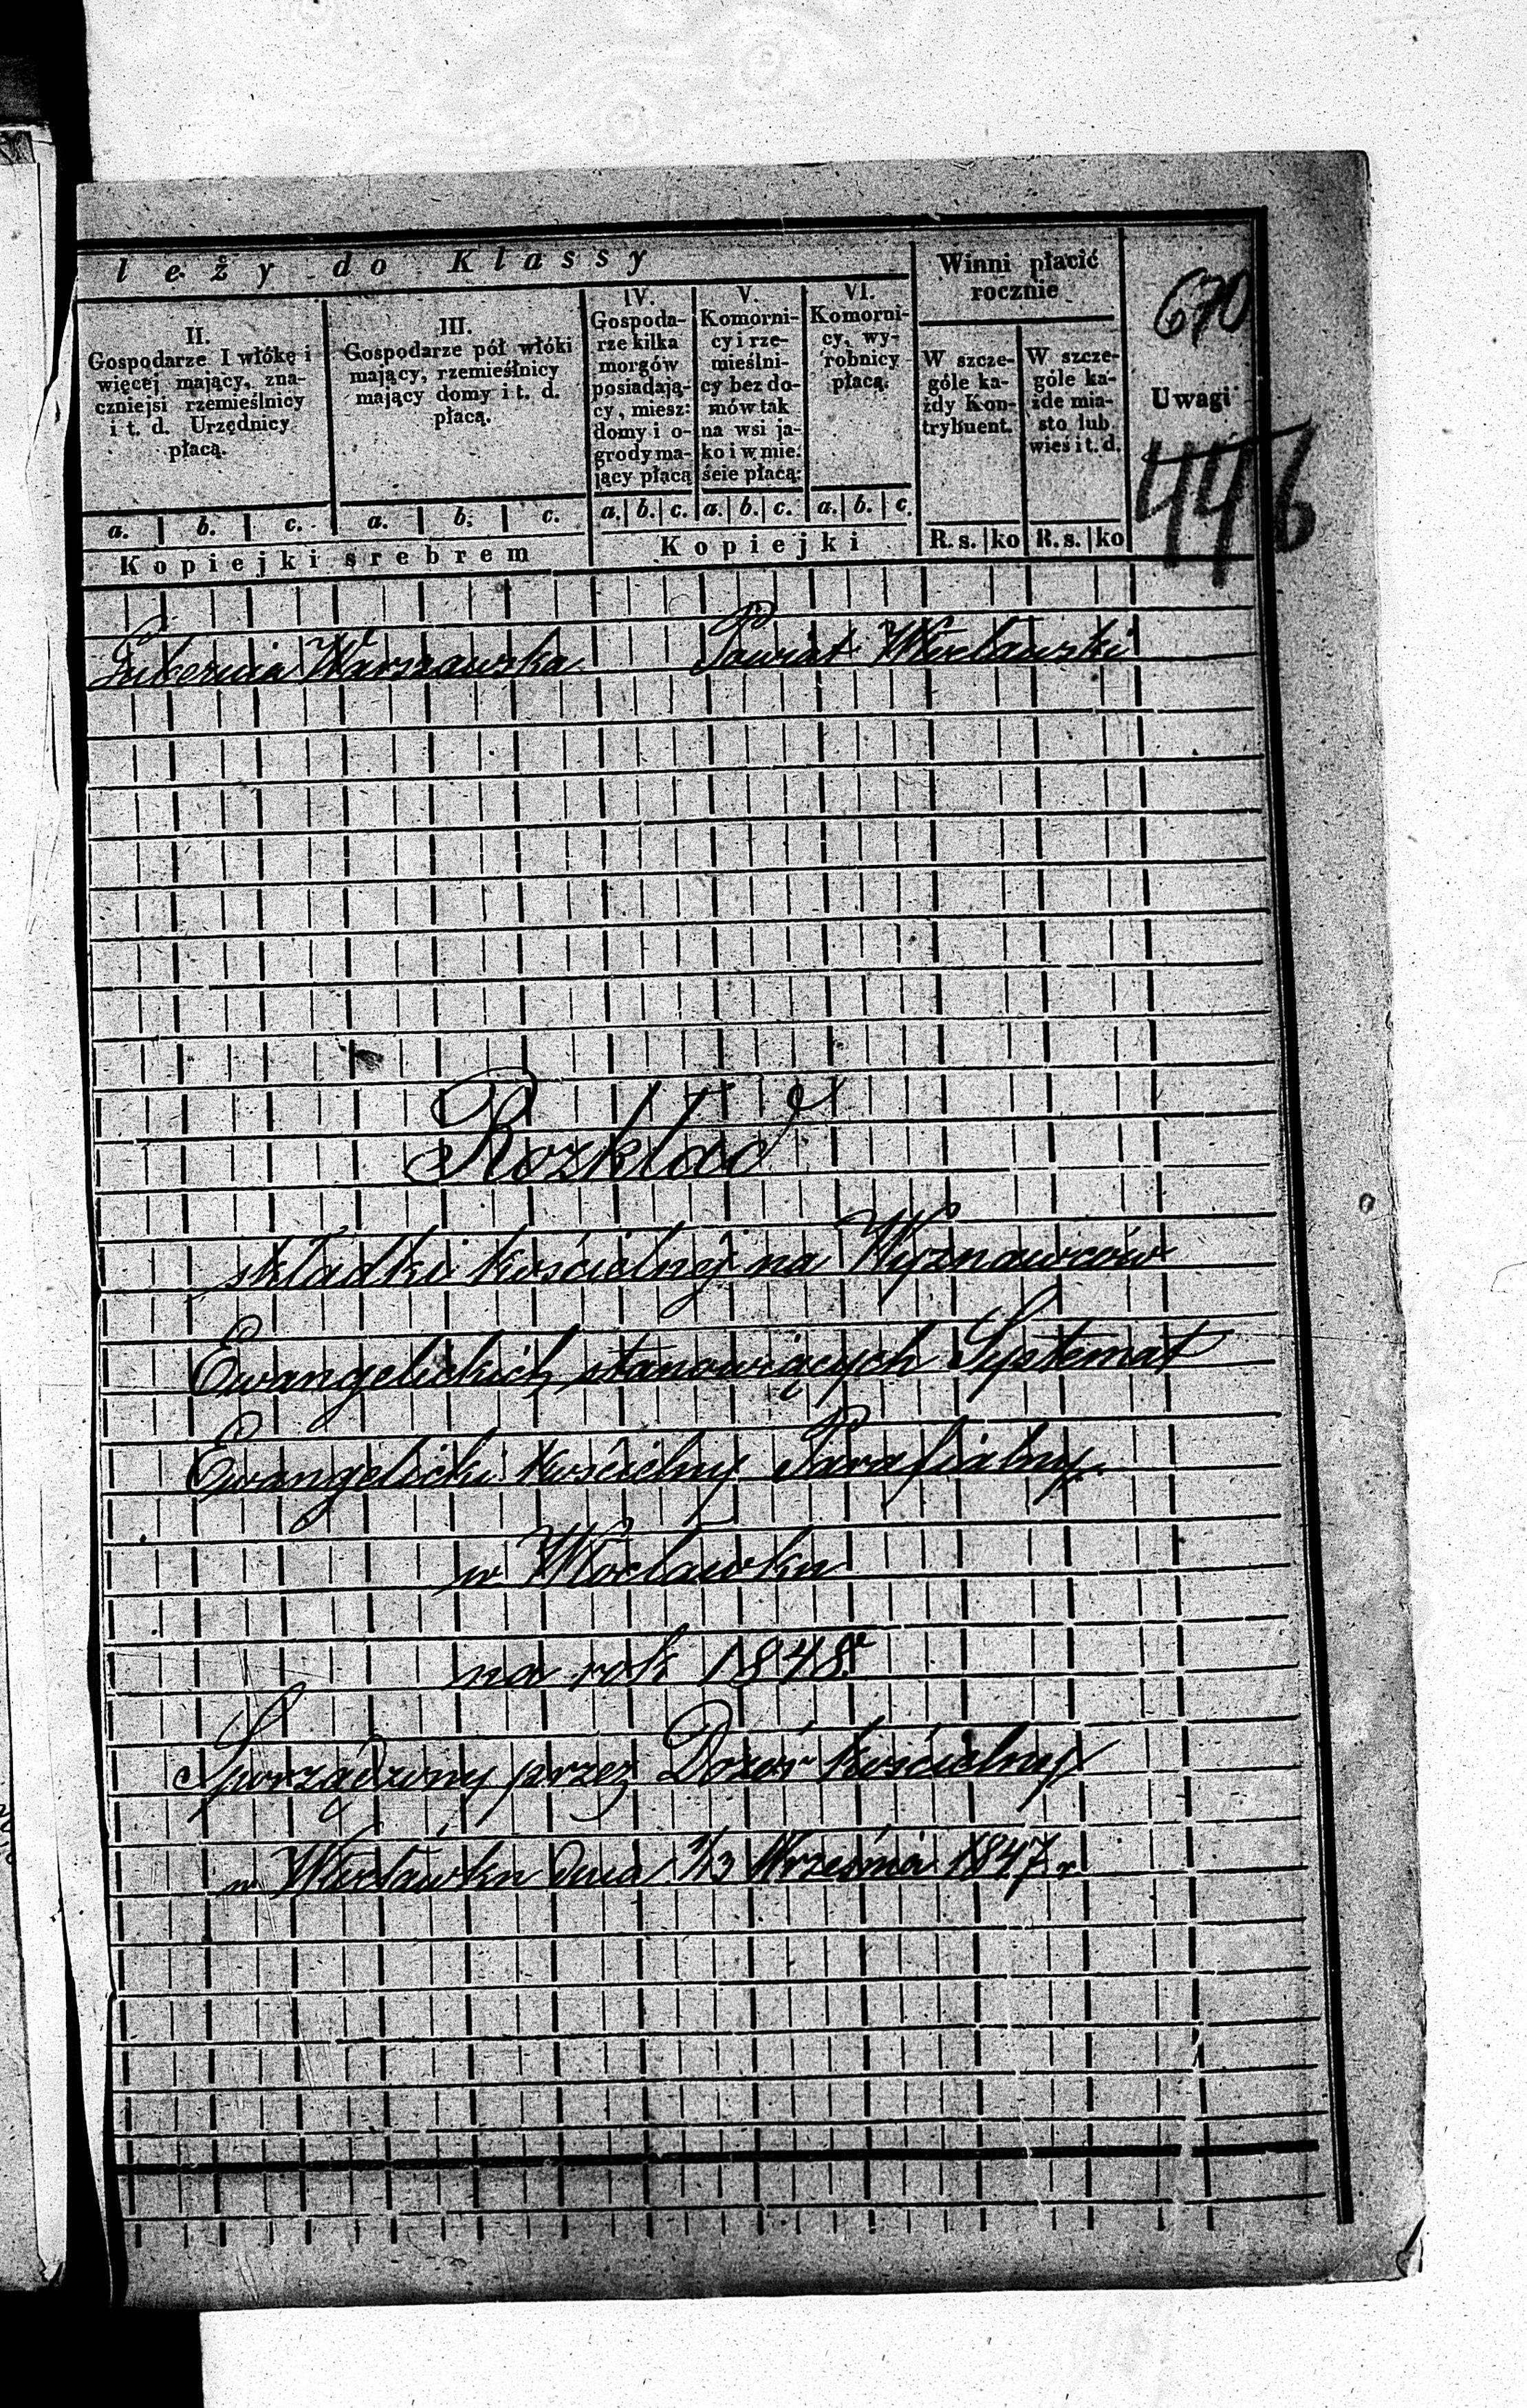 leży do Klassy
Winni płacić
rocznie
670
II.
Gospodarze I włókę i
więcej mający, zna-
czniejsi rzemieślnicy
i t. d. Urzędnicy
płacą.
III.
Gospodarze pół włóki
mający, rzemieślnicy
mający domy i t. d.
płacą.
IV.
Gospoda-
rze kilka
morgów
posiadają-
cy, miesz:
domy i o-
grody ma-
jący płacą
V.
Komorni-
cy i rze-
mieślni-
cy bez do-
mów tak
na wsi ja-
ko i w mie:
ście płacą:
VI.
Komorni-
cy, wy-
robnicy
płacą.
W szcze-
góle ka-
żdy Kon-
trybuent.
W szcze-
góle ka-
żde mia-
sto lub
wieś i t. d.
Uwagi
446
a. b. c. a. b. c. a. b. c. a. b. c. a. b. c.
R. s. ko R. s. ko
Kopiejki srebrem
Kopiejki
Gubernia Warszawska Powiat Włocławski
Rozkład
składki kościelnéj na Wyznawców
Ewangelickich stanowiących Systemat
Ewangelicki kościelny Parafialny
w Włocławku
na rok 1848 r
Sporządzony przez Dozór kościelny
w Włocławku dnia 1/13 Września 1847 r